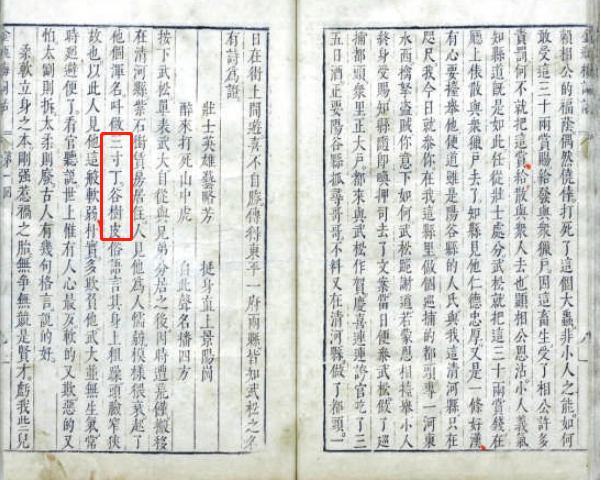 賴相公的福蔭偶然僥倖打死了這個大蟲非小人之能如何
敢受這三十兩賞賜給發與衆獵戶因這畜生受了相公許多
責罰何不就把這賞給散與衆人去也顯相公恩沾小人義氣
知縣道既是如此任從壯士處分武松就把這三十兩賞錢在
廳上俵散與衆獵戶去了知縣見他仁德忠厚又是一條好漢
有心要擡舉他便道雖是陽谷縣的人氏與我這清河縣只在
咫尺我今日就參你在我這縣里做個巡捕的都頭專一河東
水西擒拏盜賊你意下如何武松跪謝道若蒙恩相擡舉小人
終身受賜知縣隨即喚押司立了文案當日便參武松做了巡
捕都頭衆里正大戶都來與武松作賀慶喜連連誇官吃了三
五日酒正要陽谷縣抓尋哥哥不料又在清河縣做了都頭一
日在街上閒遊喜不自勝傳得東平一府兩縣皆知武松之名
有詩為證
壯士英雄藝略芳 挺身直上景陽岡
醉來打死山中虎 自此聲名播四方
按下武松單表武大自從與兄弟分居之後因時遭荒饉搬移
在清河縣紫石街賃房居住人見他為人懦弱模樣猥衰起了
他個渾名叫做三寸丁谷樹皮俗語言其身上粗躁頭臉窄狹
故也以此人見他這般軟弱朴實多欺負他武大並無生氣常
時迴避便了看官聽說世上惟有人心最歹軟的又欺惡的又
怕太剛則折太柔則廢古人有幾句格言說的好
柔軟立身之本剛强惹禍之胎無爭無競是賢才虧我些兒